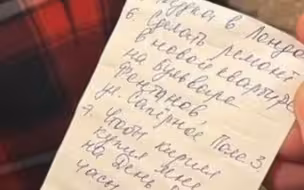 в Лонд
6. Сделать ремонт
в новой квартире
на бульваре
Фонтанов
ул. Саперное Поле 3,
7. Чтобы Кирилл
купил мне
на День
часы